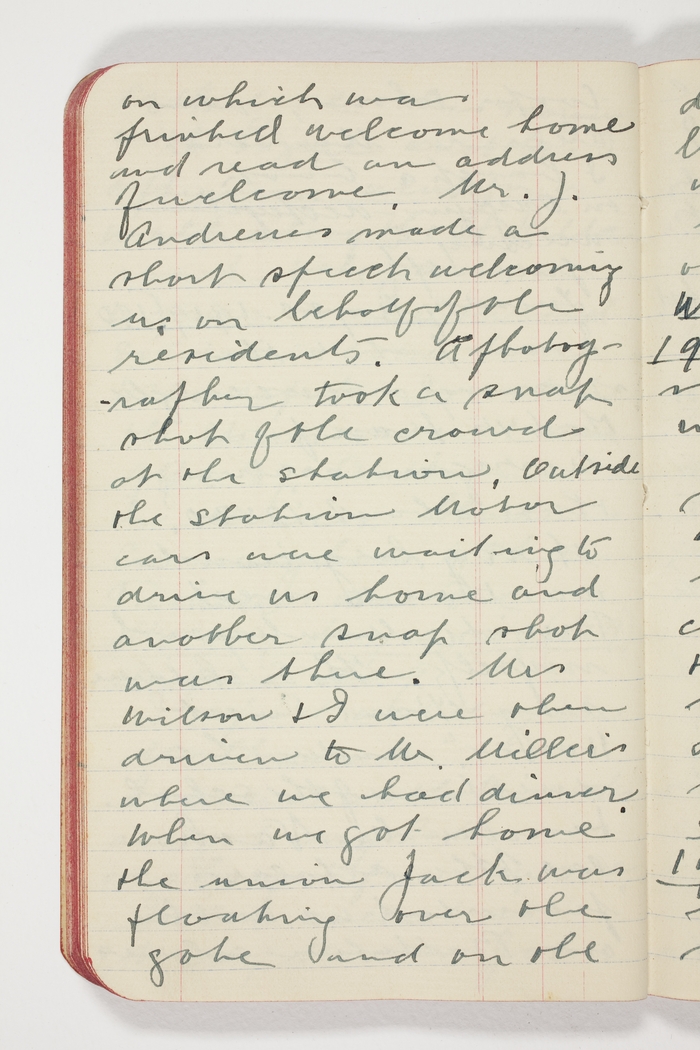 on which was
printed welcome home
and read an address
of welcome. Mr. J.
Andrews made a
short speech welcoming
us on behalf of the
residents. A photog-
-rapher took a snap
shot of the crowd
at the station. Outside
the station Motor
cars were waiting to
drive us home and
another snap shot
was there. Mrs
Wilson & I were then
driven to Mr. Miller's
where we had dinner.
When we got home
the union Jack was
floating over the
gate and on the
W
19